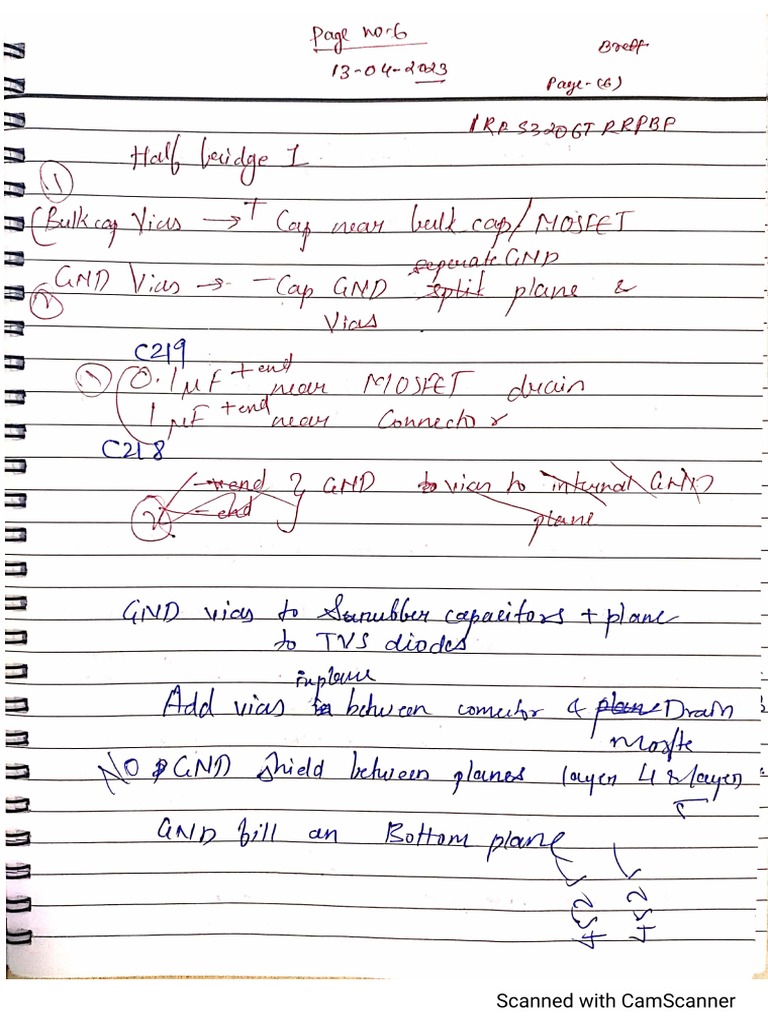 Page no-6
Breff
13-04-2023
Page-(6)
IRRS3206TRRPBP
Half bridge 1
1
(Bulk cap Vias → + Cap near bulk cap/MOSFET
seperate GND
GND Vias → - Cap GND split plane &
2
Vias
C219
1 0.1 µF + end near MOSFET drain
1 µF + end near Connector
C218
+ end } GND to vias to internal GND
2 - end plane
GND vias to Snrubber capacitors + plane
to TVS diodes
inplane
Add vias between connector & plane Drain
Mosfte
NO GND shield between planes layer 4 & layer
GND fill an Bottom plane
452
452
Scanned with CamScanner